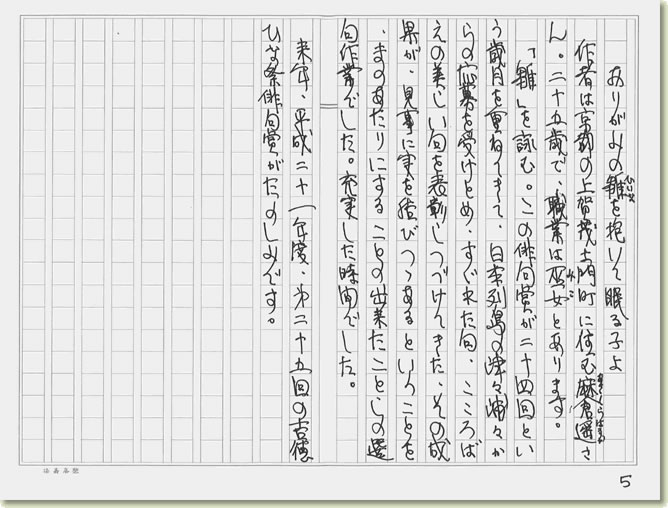 ありがみの雛を抱いて眠る子よ
作者は京都の上賀茂土門町に住む麻倉遥さ
ん。二十五歳で、職業は巫女とあります。
「雛」を詠む。この俳句賞が二十四回とい
う歳月を重ねてきて、日本列島の津々浦々か
らの応募を受けとめ、すぐれた句、こころば
えの美しい句を表彰しつづけてきた、その成
果が、見事に実を結びつつあるということを
、まのあたりにすることの出来たことしの選
句作業でした。充実した時間でした。
来年、平成二十一年度、第二十五回の吉徳
ひな祭俳句賞がたのしみです。
5